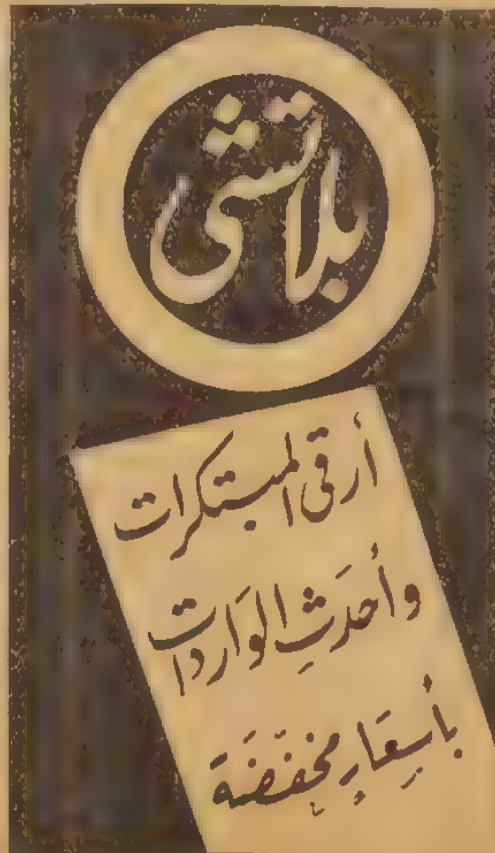 بلاتشي
أرقى المبتكرات
وأحدَثِ الوَاردات
بأسعَارٍ مخفّضَة